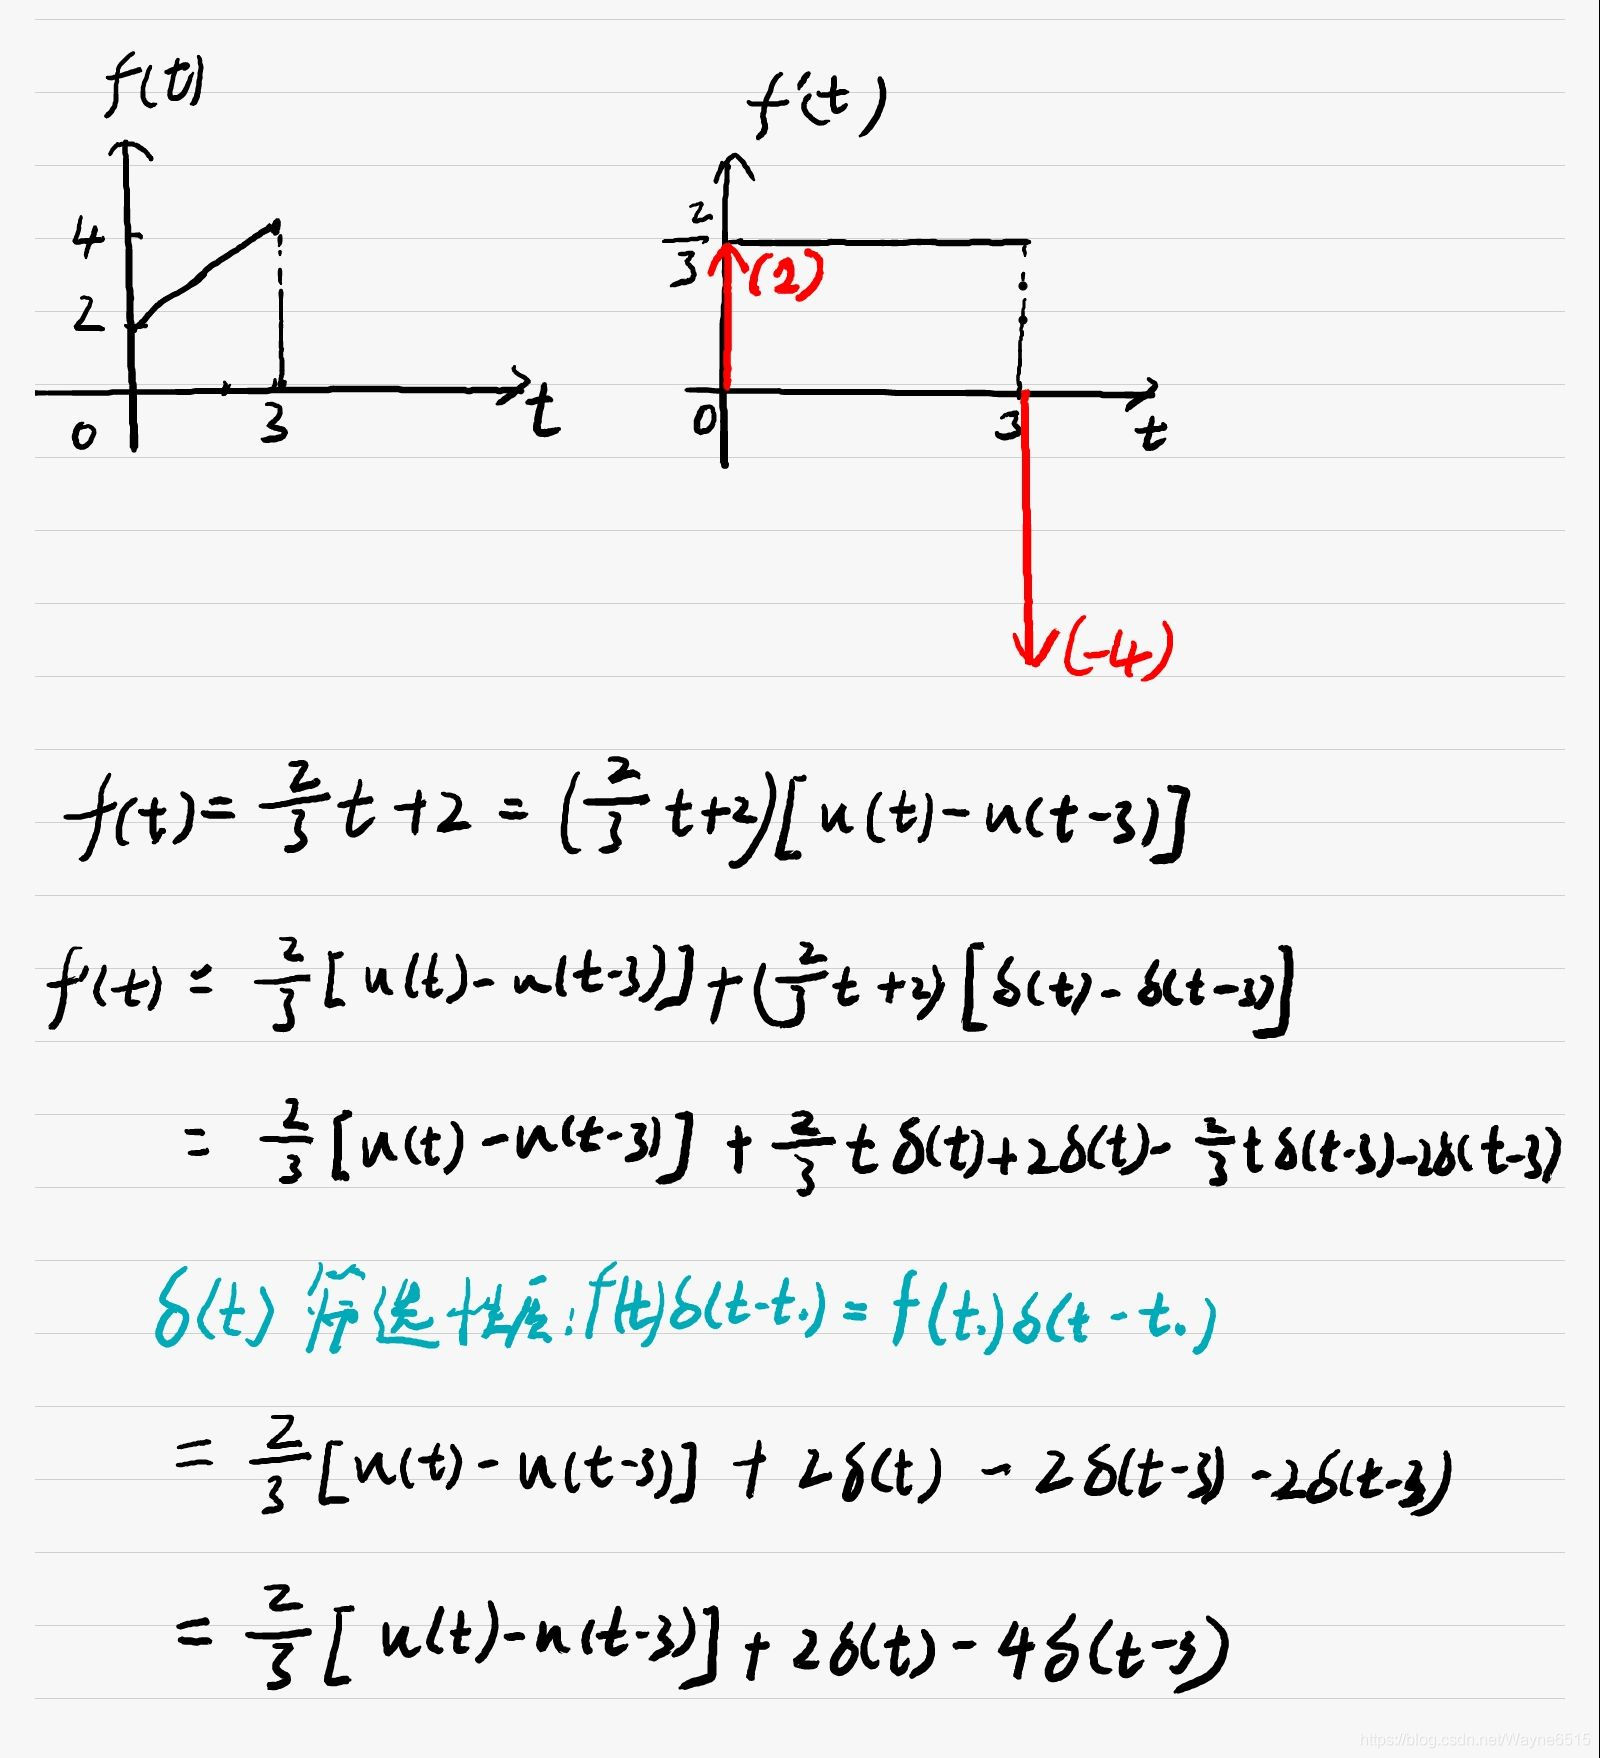 f(t)
f'(t)
4
2
0
3
t
2/3
(2)
0
3
t
(-4)
f(t) = 2/3 t + 2 = (2/3 t+2)[u(t) - u(t-3)]
f'(t) = 2/3 [u(t) - u(t-3)] + (2/3 t + 2) [δ(t) - δ(t-3)]
= 2/3 [u(t) - u(t-3)] + 2/3 t δ(t) + 2δ(t) - 2/3 t δ(t-3) - 2δ(t-3)
δ(t) 筛选性质: f(t)δ(t-t₀) = f(t₀)δ(t-t₀)
= 2/3 [u(t) - u(t-3)] + 2δ(t) - 2δ(t-3) - 2δ(t-3)
= 2/3 [u(t) - u(t-3)] + 2δ(t) - 4δ(t-3)
https://blog.csdn.net/Wayne6515